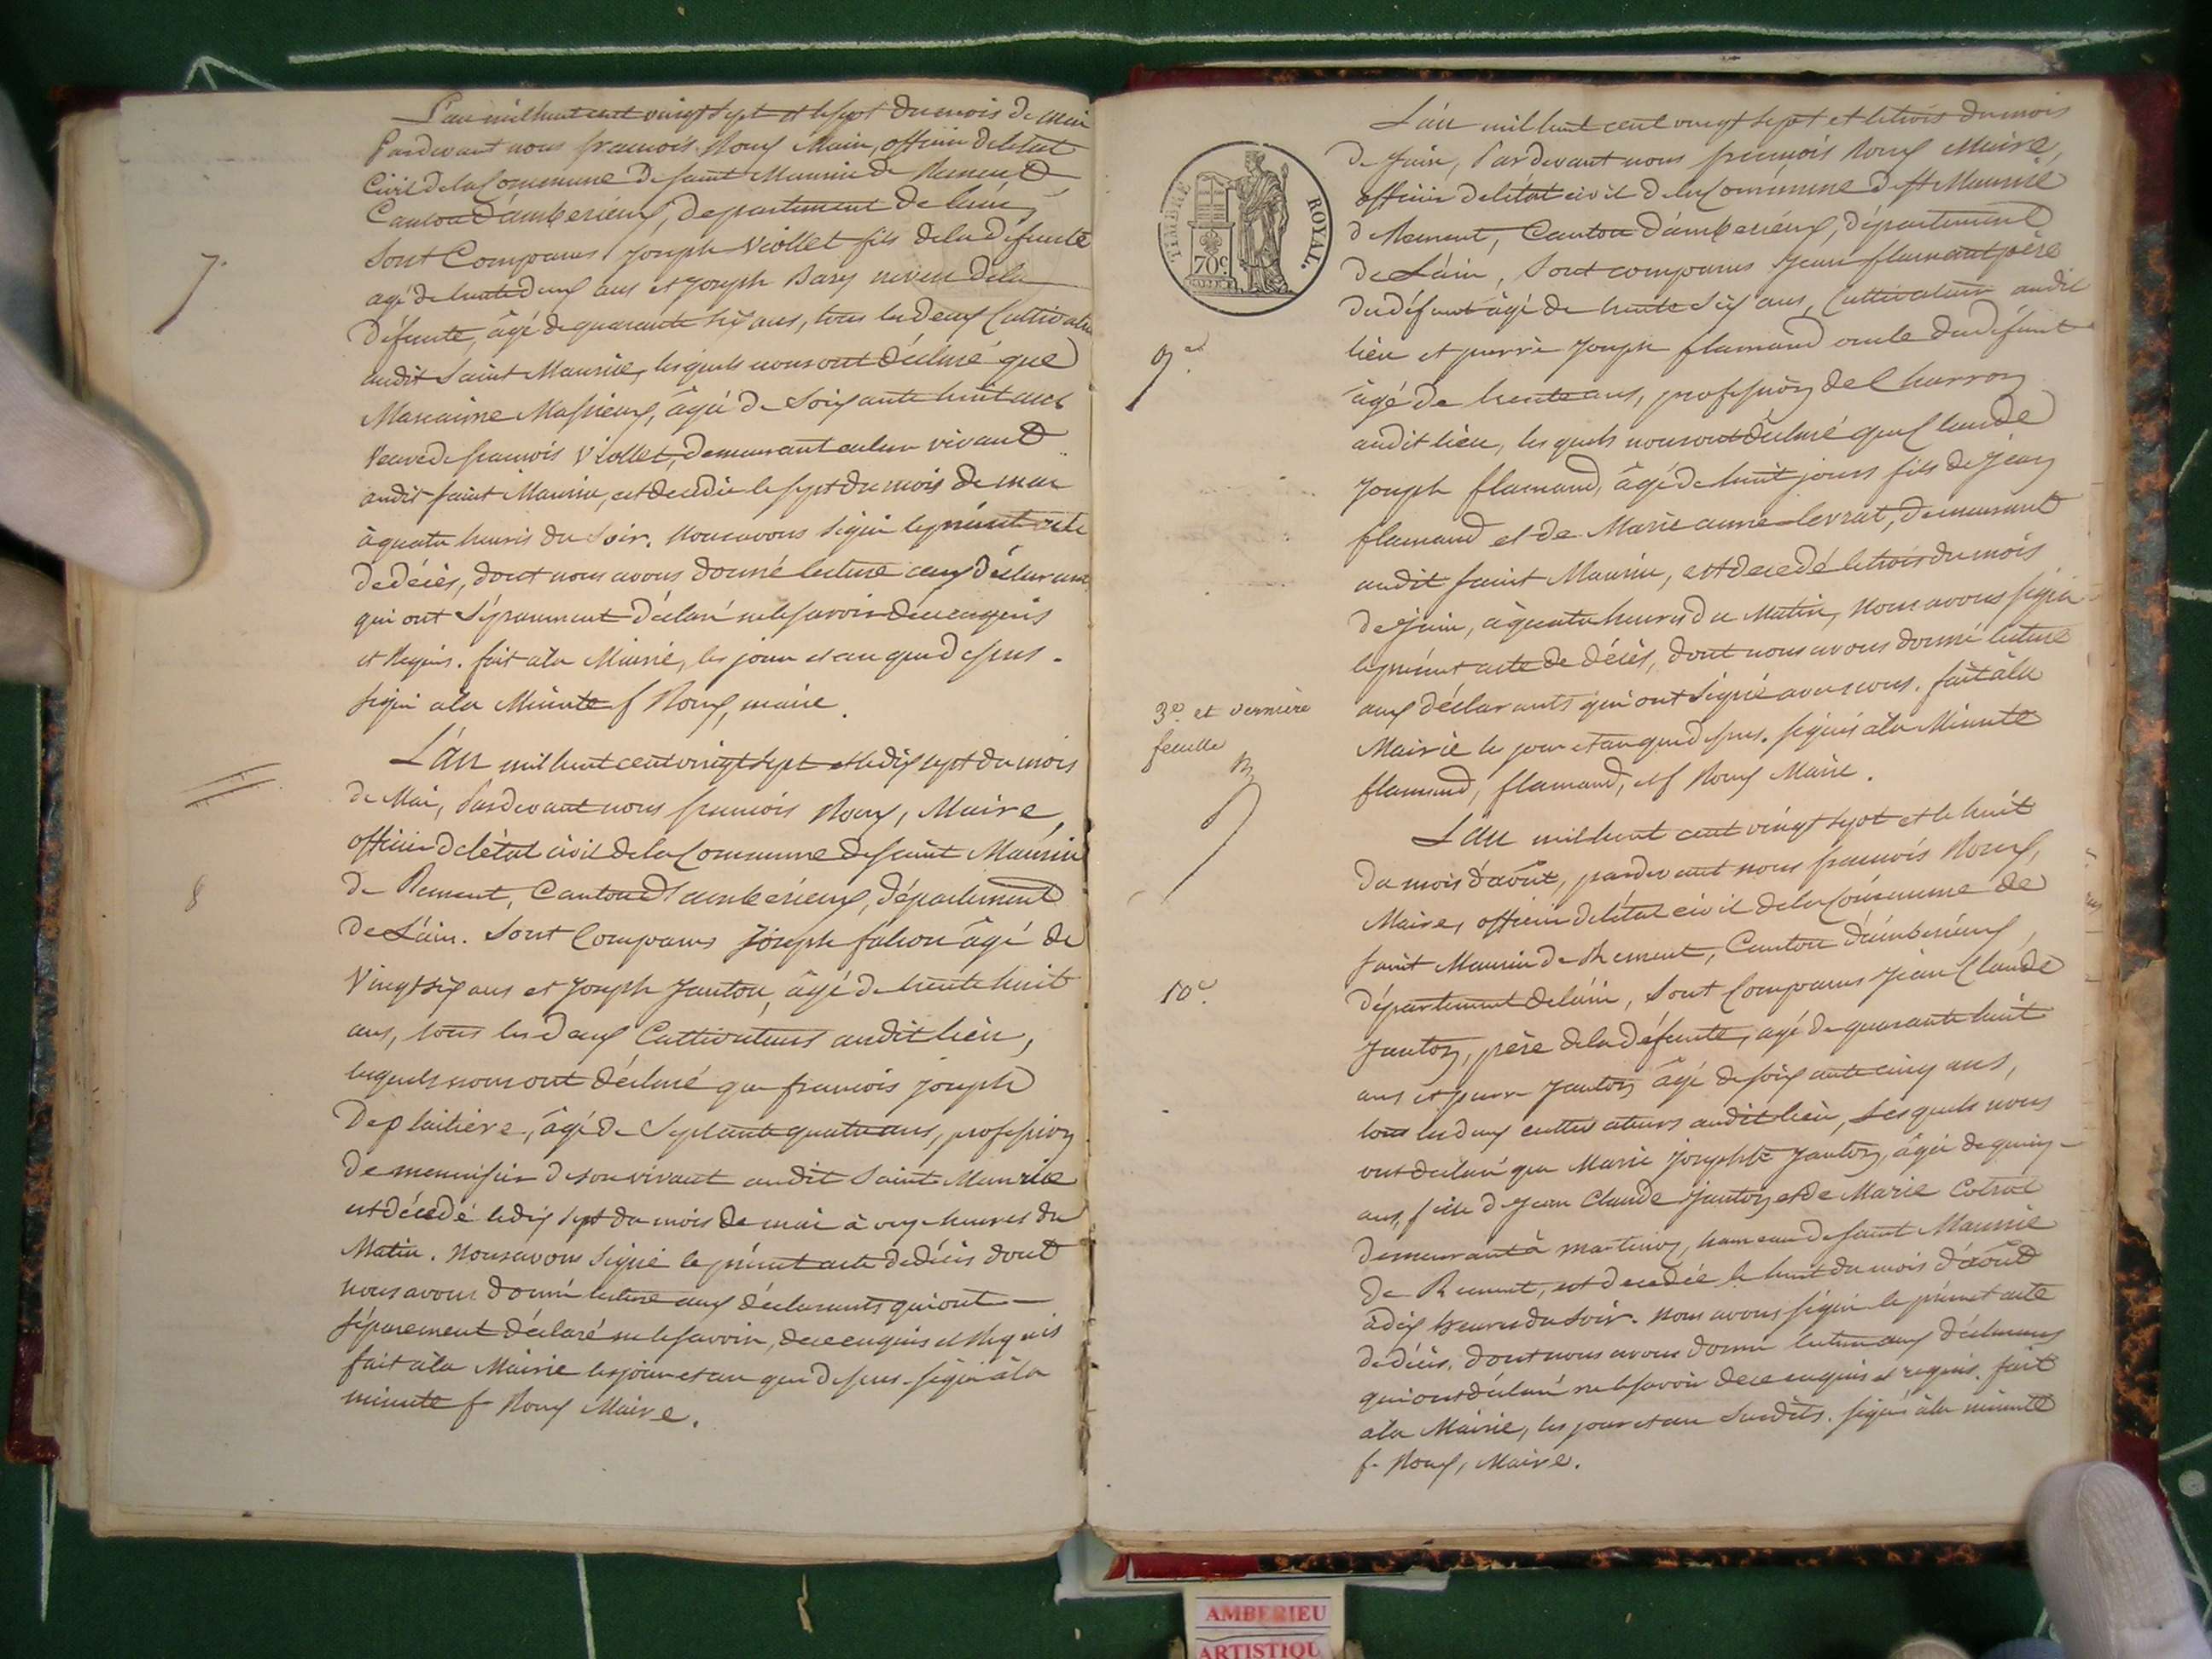 L'an mil huit cent vingt sept et le sept du mois de mai
Pardevant nous francois Roux Maire, officier deletat
Civil de la Commune de saint Maurice de Remend
Canton d'amberieux, departement de l'ain,
Sont Comparus Joseph Viollet fils de la défunte
agé de trente deux ans et Joseph Bary neveu de la
défunte, âgé de quarante six ans, tous les deux Cultivateurs
audit Saint Maurice, lesquels nous ont déclaré que
7.
Marianne Massieux, âgée de Soixante huit ans
Veuve de francois Viollet, demeurant
vivant
audit saint Maurice, est decedée le sept du mois de mai
à quatre heures du Soir. Nous avons signé le présent acte
de décès, dont nous avons donné lecture aux déclarans
qui ont séparement déclaré ne le savoir de ce enquis
et Requis. fait a la Mairie, les jour et an que dessus.
signé a la Minute f Roux, maire.
L'an mil huit cent vingt sept et le dix sept du mois
de Mai, Pardevant nous francois Roux, Maire,
officier de létat civil de la Commune de saint Maurice
de Rement, Canton d'amberieux, département
8
de L'ain. Sont Comparus Joseph falcon âgé de
Vingt six ans et Joseph Janton, âgé de trente huit
ans, tous les deux Cultivateurs audit lieu,
lesquels nous ont déclaré que francois joseph
Deplaitière, âgé de Septante quatre ans, profession
de menuisier de son vivant audit Saint Maurice
est décedé le dix sept du mois de mai à onze heures du
Matin. Nous avons signé le présent acte de décès dont
nous avons donné lecture aux déclarants qui ont
séparement déclaré ne le savoir, de ce enquis et Requis
fait a la Mairie les jour et an que dessus. signé à la
minute f Roux Maire.
L'an mil huit cent vingt sept et le trois du mois
de Juin, Pardevant nous francois Roux Maire,
officier de létat civil de la Commune de St Maurice
de Rement, Canton d'amberieux, département
de L'ain, Sont comparus Jean flamant père
du défunt âgé de trente Six ans, Cultivateur audit
TIMBRE ROYAL.
70c
lieu et pierre Joseph flamand oncle du défunt
9e.
âgé de trente ans, profession de Charron
audit lieu, lesquels nous ont déclaré que Claude
Joseph flamand, âgé de huit jours fils de jean
flamand et de Marie anne levrat, demeurant
audit saint Maurice, est decedé le trois du mois
de Juin, à quatre heures du Matin, Nous avons signé
le présent acte de décès, dont nous avons donné lecture
aux déclarants qui ont signé avec nous. fait à la
3e. et dernière
feuille
Mairie le jour et an que dessus. signés à la Minute
flamand, flamand, et f Roux Maire.
L'an mil huit cent vingt sept et le huit
du mois d'août, pardevant nous francois Roux,
Maire, officier de létat civil de la Commune de
saint Maurice de Rement, Canton d'ambérieux,
10e.
département de l'ain, Sont Comparus Jean Claude
Janton, père de la défunte, agé de quarante huit
ans et pierre Janton âgé de soixante cinq ans,
tous les deux cultivateurs audit lieu, Lesquels nous
ont déclaré que Marie Josephte Janton, âgée de quinze
ans, fille de Jean Claude Janton et de Marie
demeurant à martinaz, hameau de saint Maurice
de Rement, est decedée le huit du mois d'août
à dix heures du Soir. Nous avons signé le présent acte
de décès, dont nous avons donné lecture aux déclarans
qui ont déclaré ne le savoir de ce enquis et requis. fait
a la Mairie, les jour et an Susdits. signé à la minute
f. Roux, Maire.
AMBERIEU
ARTISTIQU